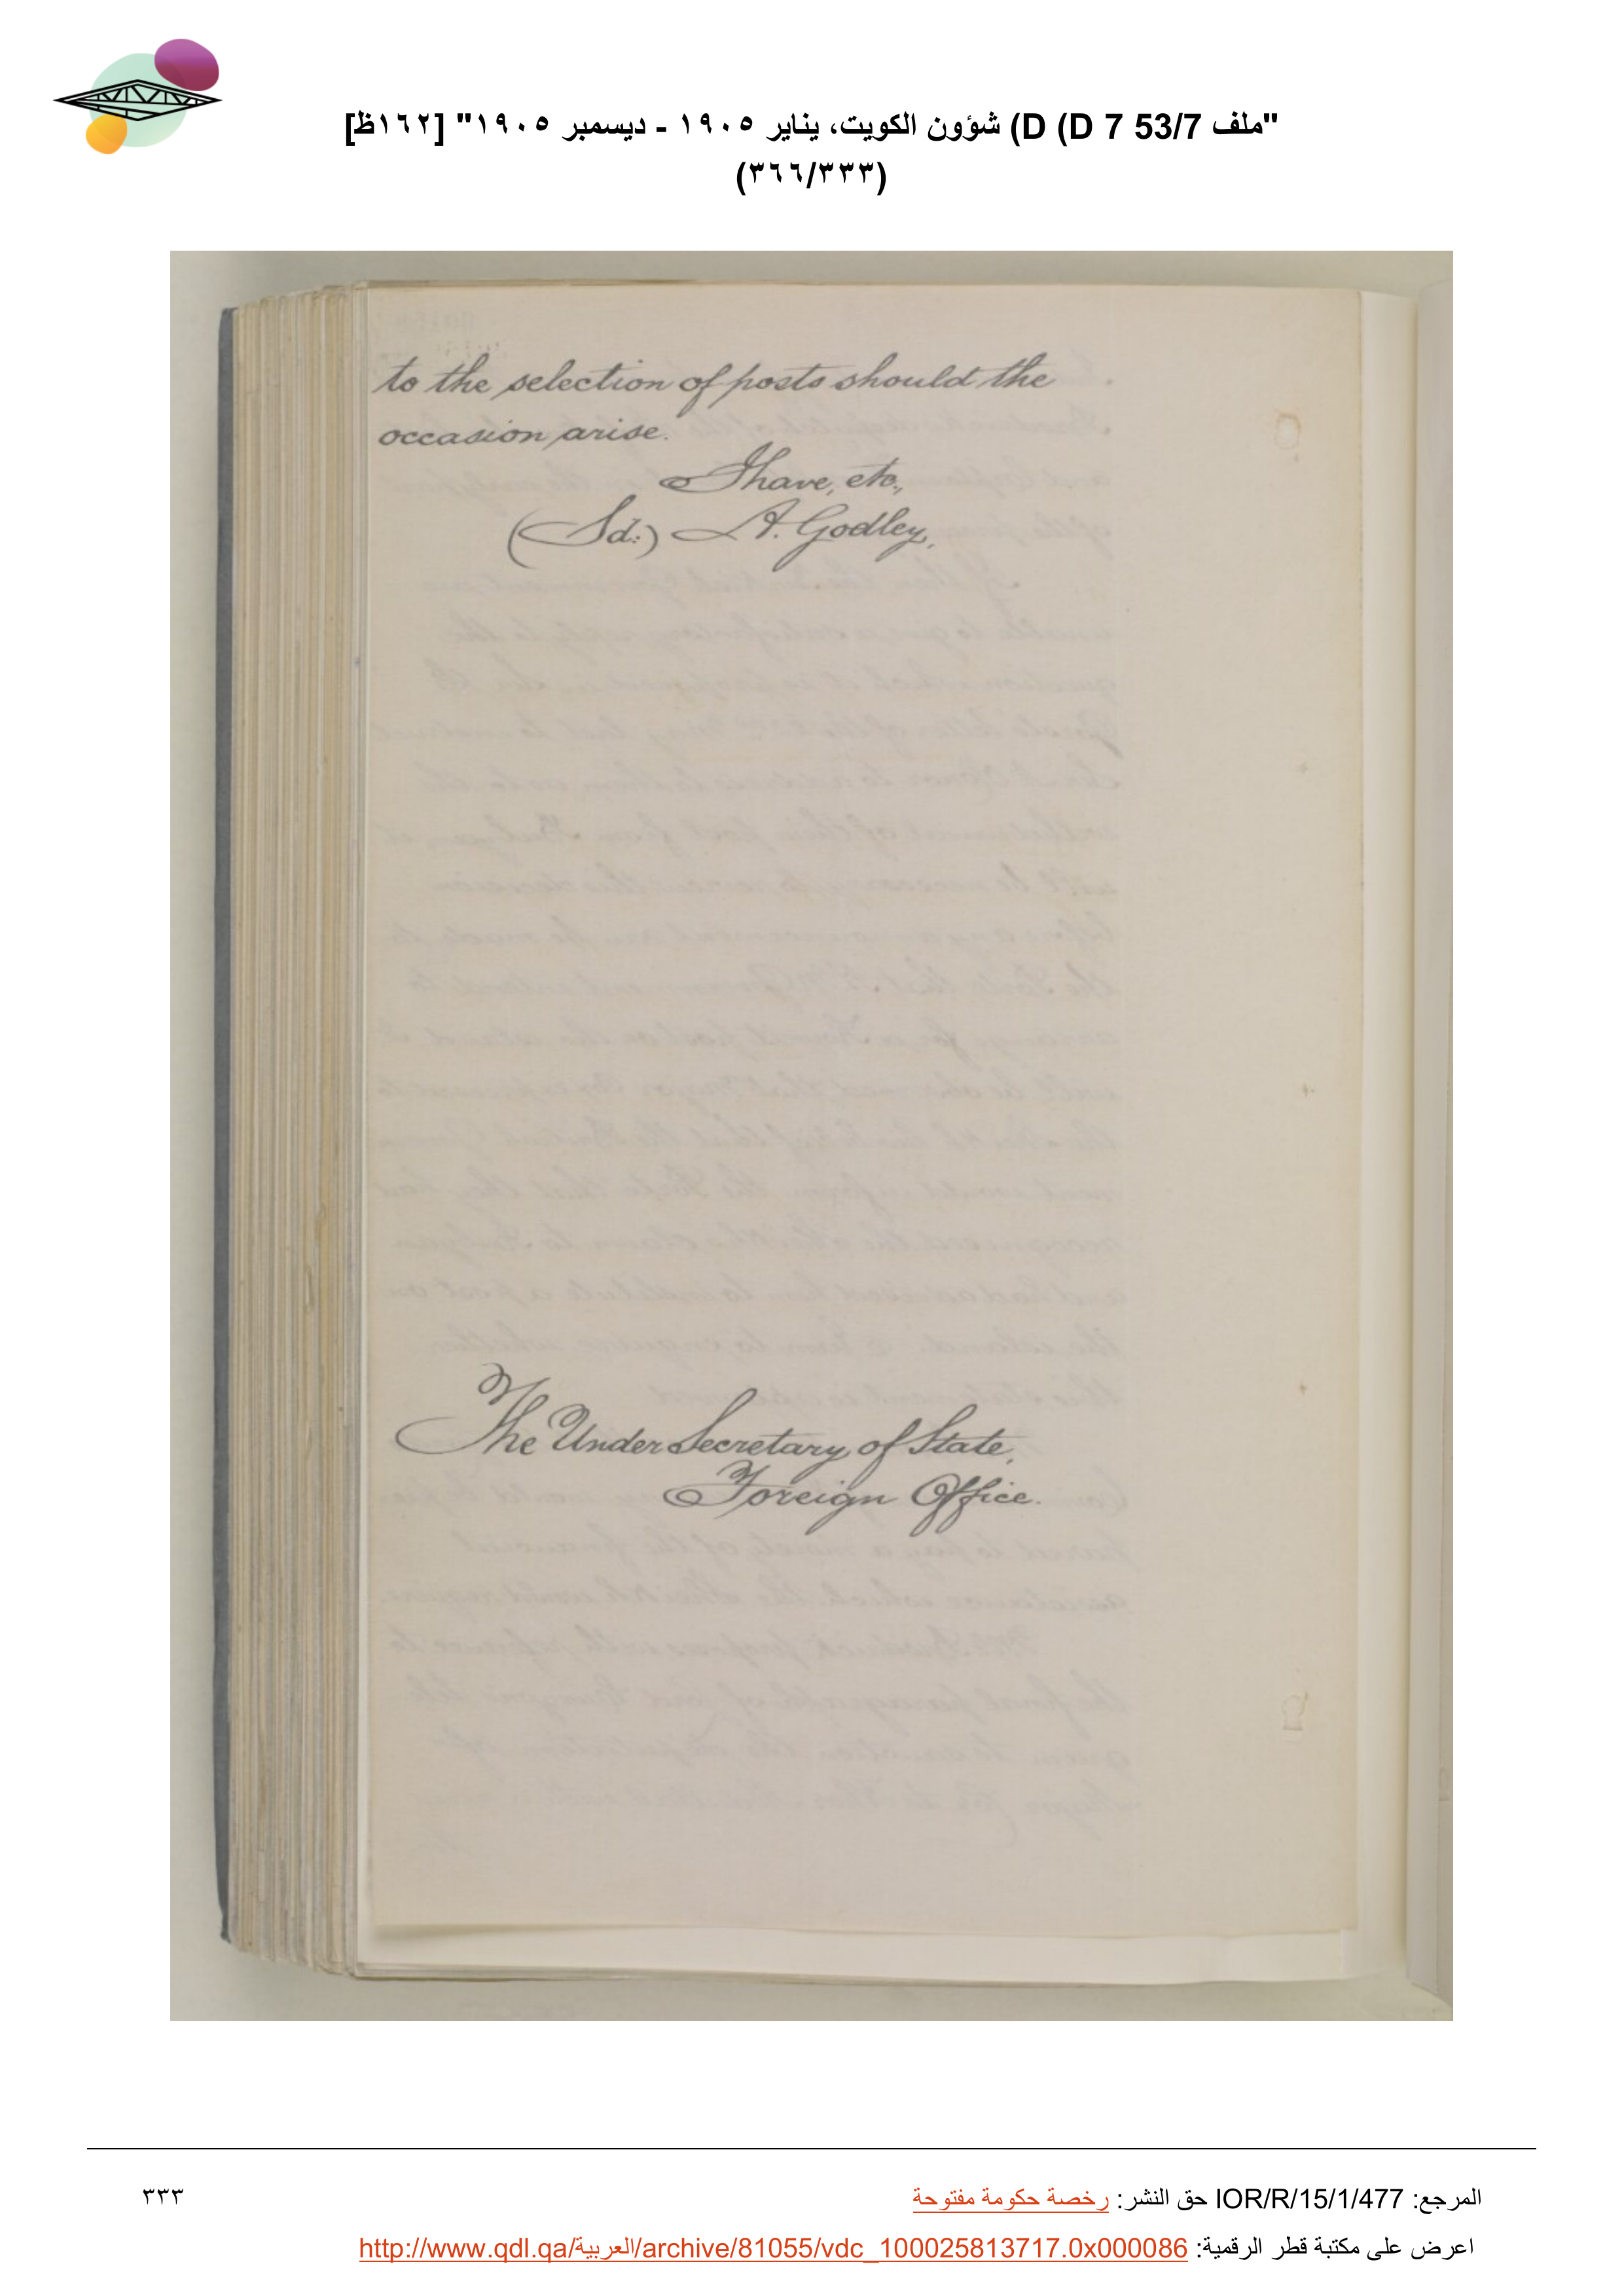 "ملف 53/7 D 7) D) شؤون الكويت، يناير ١٩٠٥ - ديسمبر ١٩٠٥" [١٦٢ظ]
(٣٦٦/٣٣٣)
to the selection of posts should the
occasion arise.
I have, etc.,
(Sd:) A. Godley,
The Under Secretary of State,
Foreign Office.
المرجع: IOR/R/15/1/477 حق النشر: رخصة حكومة مفتوحة
٣٣٣
اعرض على مكتبة قطر الرقمية: http://www.qdl.qa/العربية/archive/81055/vdc_100025813717.0x000086